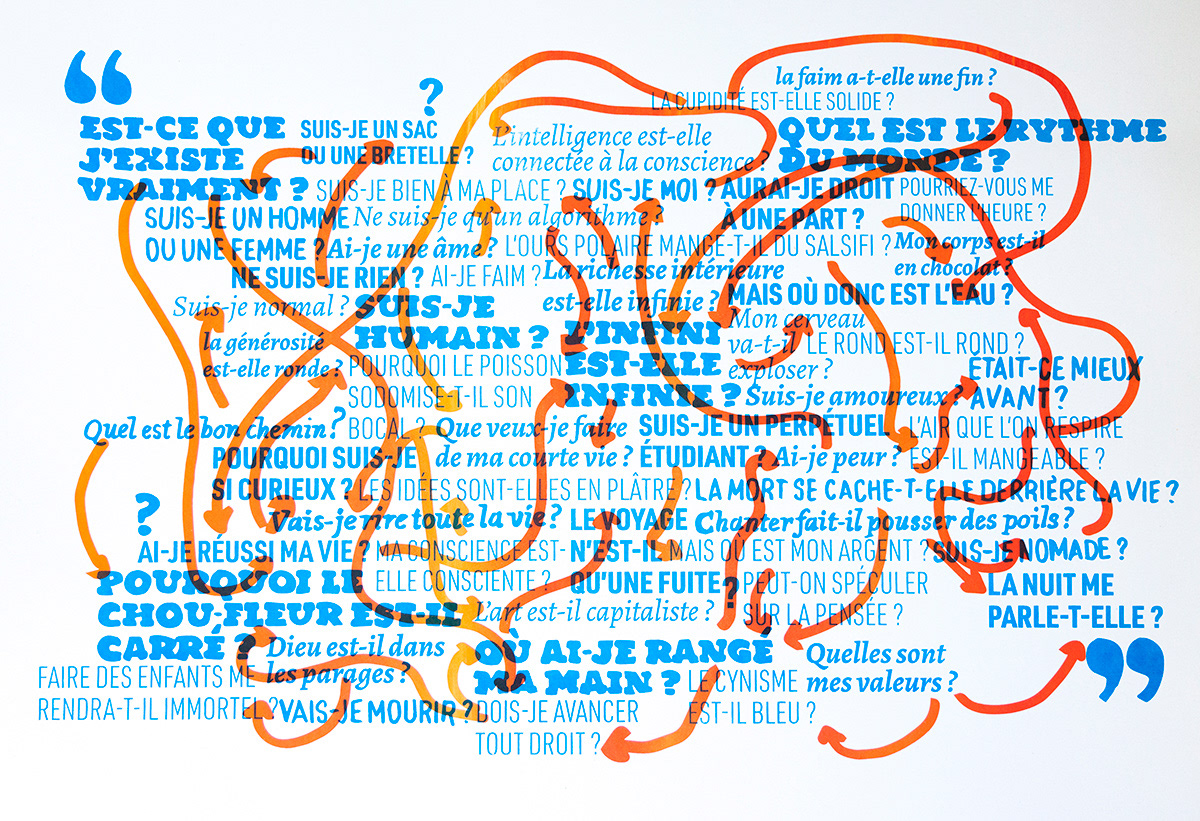 “
?
la faim a-t-elle une fin ?
LA CUPIDITÉ EST-ELLE SOLIDE ?
EST-CE QUE
J'EXISTE
VRAIMENT ?
SUIS-JE UN SAC
OU UNE BRETELLE ?
L'intelligence est-elle
connectée à la conscience ?
QUEL EST LE RYTHME
DU MONDE ?
SUIS-JE BIEN À MA PLACE ?
SUIS-JE MOI ?
AURAI-JE DROIT
À UNE PART ?
POURRIEZ-VOUS ME
DONNER L'HEURE ?
SUIS-JE UN HOMME
OU UNE FEMME ?
Ne suis-je qu'un algorithme ?
Ai-je une âme ?
L'OURS POLAIRE MANGE-T-IL DU SALSIFI ?
Mon corps est-il
en chocolat ?
NE SUIS-JE RIEN ?
AI-JE FAIM ?
La richesse intérieure
est-elle infinie ?
MAIS OÙ DONC EST L'EAU ?
Suis-je normal ?
SUIS-JE
HUMAIN ?
L'INFINI
EST-ELLE
INFINIE ?
Mon cerveau
va-t-il
exploser ?
LE ROND EST-IL ROND ?
la générosité
est-elle ronde ?
POURQUOI LE POISSON
SODOMISE-T-IL SON
BOCAL ?
ÉTAIT-CE MIEUX
AVANT ?
Suis-je amoureux ?
Quel est le bon chemin ?
Que veux-je faire
de ma courte vie ?
SUIS-JE UN PERPÉTUEL
ÉTUDIANT ?
L'AIR QUE L'ON RESPIRE
EST-IL MANGEABLE ?
POURQUOI SUIS-JE
SI CURIEUX ?
Ai-je peur ?
LES IDÉES SONT-ELLES EN PLÂTRE ?
LA MORT SE CACHE-T-ELLE DERRIÈRE LA VIE ?
?
Vais-je rire toute la vie ?
LE VOYAGE
N'EST-IL
QU'UNE FUITE ?
Chanter fait-il pousser des poils ?
AI-JE RÉUSSI MA VIE ?
MA CONSCIENCE EST-
ELLE CONSCIENTE ?
MAIS OÙ EST MON ARGENT ?
SUIS-JE NOMADE ?
POURQUOI LE
CHOU-FLEUR EST-IL
CARRÉ ?
PEUT-ON SPÉCULER
SUR LA PENSÉE ?
LA NUIT ME
PARLE-T-ELLE ?
L'art est-il capitaliste ?
Dieu est-il dans
les parages ?
OÙ AI-JE RANGÉ
MA MAIN ?
Quelles sont
mes valeurs ?
”
FAIRE DES ENFANTS ME
RENDRA-T-IL IMMORTEL ?
VAIS-JE MOURIR ?
LE CYNISME
EST-IL BLEU ?
DOIS-JE AVANCER
TOUT DROIT ?